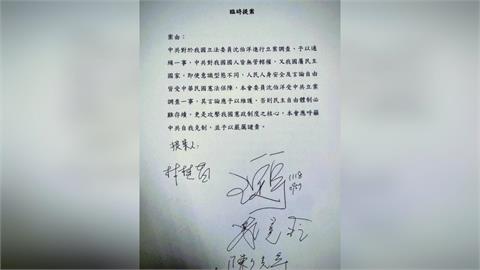 臨時提案
案由：
中共對於我國立法委員沈伯洋進行立案調查、予以通
緝一事，中共對我國國人皆無管轄權，又我國屬民主
國家，即使意識型態不同，人民人身安全及言論自由
皆受中華民國憲法保障，本會委員沈伯洋受中共立案
調查一事，其言論應予以維護，否則民主自由體制必
難存續，更是攻擊我國憲政制度之核心，本會應呼籲
中共自我克制，並予以嚴厲譴責。
提案人：